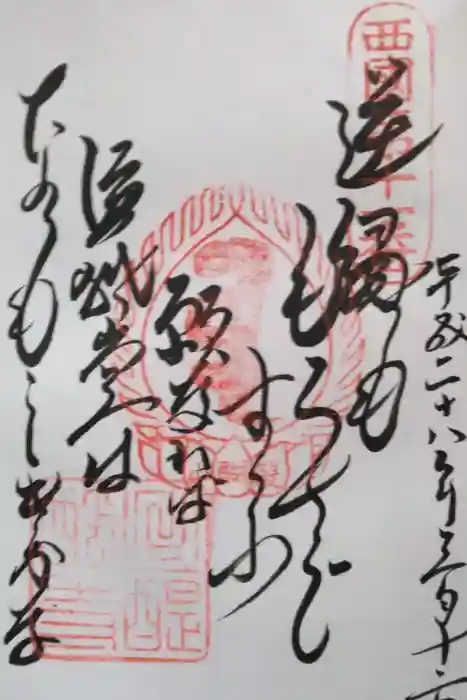 平成二十八年三月十二
西國第十一番
逆縁も
もらさて
すくふ
願なれは
准胝堂は
たのもしきかな